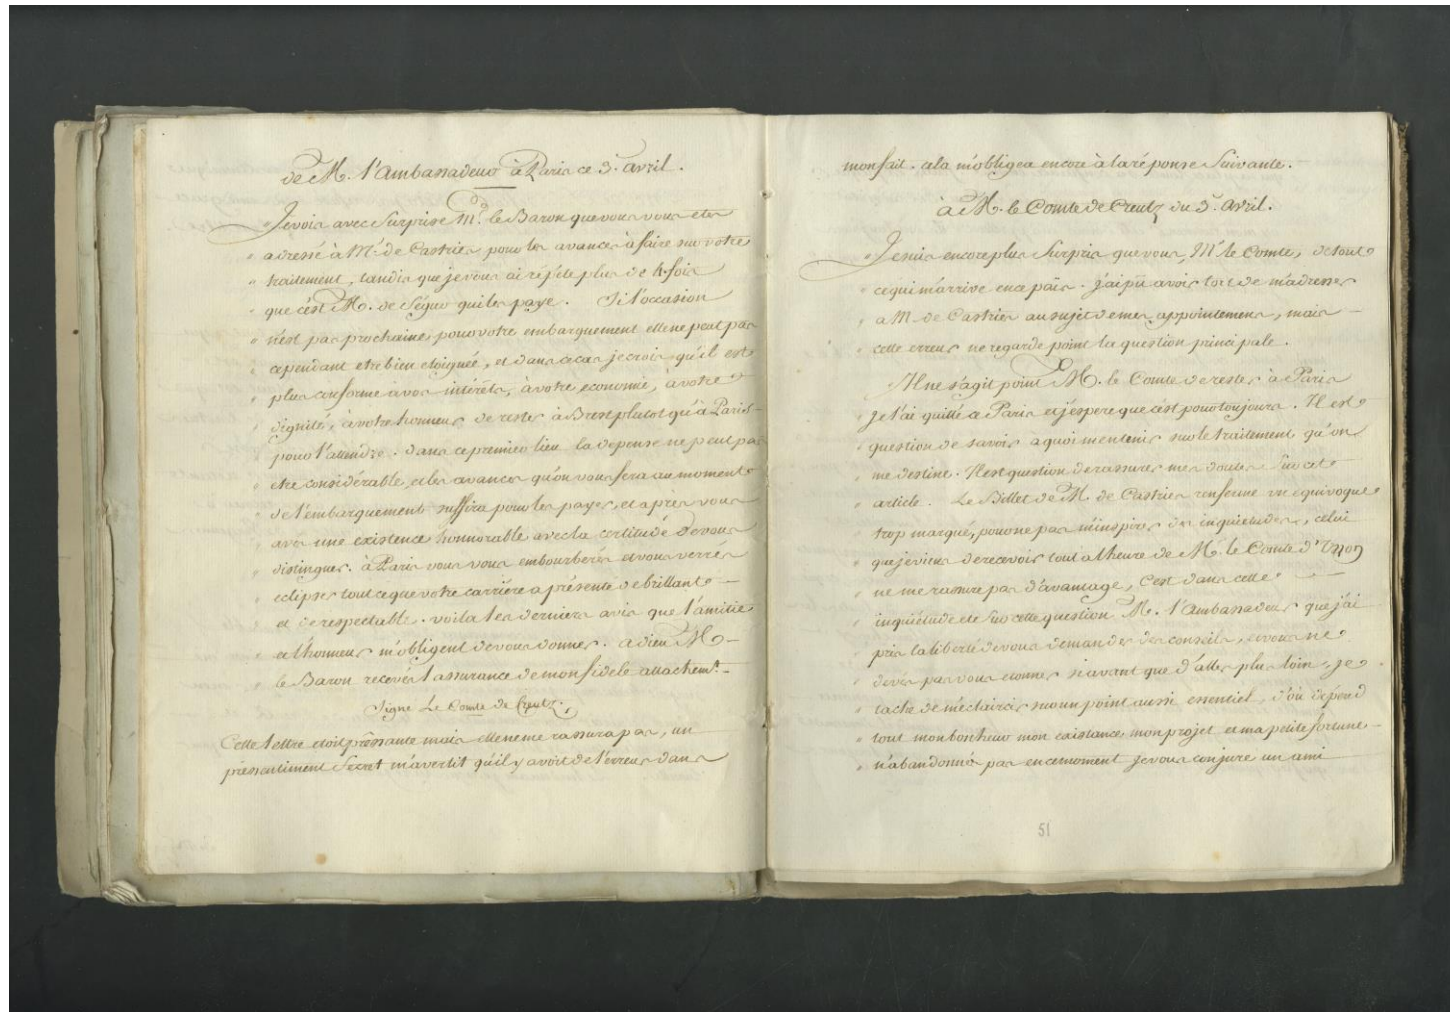 de M. l'Ambassadeur à Paris ce 3. avril.
Je vois avec Surprise M.r le Baron que vous vous etes
" adressé à M.r de Castries pour les avances à faire sur votre
" traitement, tandis que je vous ai répété plus de 4. fois
" que c'est M. de Ségur qui les paye. Si l'occasion
" n'est pas prochaine, pour votre embarquement elle ne peut pas
" cependant etre bien eloignée, et dans ce cas je crois qu'il est
" plus conforme à vos intérêts, à votre economie, à votre
" dignité, à votre honneur de rester à Brest plutot qu'à Paris
" pour l'attendre. dans ce premier lieu la depense ne peut pas
" etre considérable, et les avances qu'on vous fera au moment
" de l'embarquement suffira pour les payer, et après vous
" avés une existence honnorable avec la certitude de vous
" distinguer. à Paris vous vous embourberés et vous verrés
" eclipser tout ce que votre carrière a présenté de brillant
" et de respectable. voila les derniers avis que l'amitié
" et l'honneur m'obligent de vous donner. adieu M.
" le Baron recevés l'assurance de mon fidele attachem.t
Signe Le Comte de Creutz.
Cette lettre etoit pressante mais elle ne me rassura pas, un
pressentiment Secret m'avertit qu'il y avoit de l'erreur dans
mon fait. cela m'obligea encore à la réponse Suivante.
à M. le Comte de Creutz du 3. avril.
" Je suis encore plus Surpris que vous, M.r le Comte, de tout
" ce qui m'arrive en ce païs. j'ai pû avoir tort de m'adresser
" a M. de Castries au sujet de mes appointemens, mais
" cette erreur ne regarde point la question principale.
" Il ne s'agit point M. le Comte de rester à Paris
" Je l'ai quitté a Paris et j'espere que c'est pour toujours. Il est
" question de savoir a quoi m'en tenir sur le traitement qu'on
" me destine. Il est question de rassurer mes doutes Sur cet
" article. Le Billet de M. de Castries renferme un equivoque
" trop marqué, pour ne pas m'inspirer des inquietudes, celui
" que je viens de recevoir tout a l'heure de M. le Comte d'
" ne me rassure pas d'avantage, C'est dans cette
" inquiétude et Sur cette question M. l'Ambassadeur que j'ai
" pris la liberté de vous demander des conseils, et vous ne
" devés pas vous etonner si avant que d'aller plus loin, je
" tache de m'éclaircir sur un point aussi essentiel, d'où depend
" tout mon bonheur mon existance, mon projet et ma petite fortune
" n'abandonnés pas en ce moment je vous conjure un ami
51